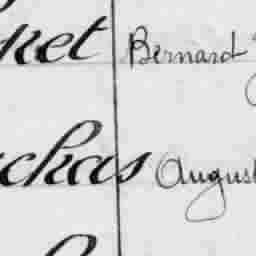 ket Bernard
chas August